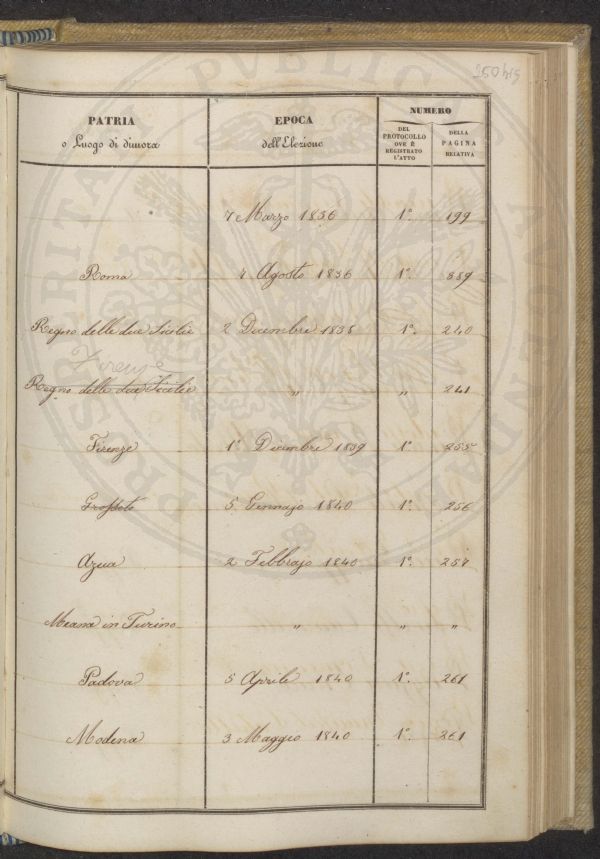 PROSPERITATI PUBLICAE AUGENDAE
PATRIA
o Luogo di dimora
EPOCA
dell'Elezione
NUMERO
DEL PROTOCOLLO OVE È REGISTRATO L'ATTO
DELLA PAGINA RELATIVA
7 Marzo 1836 1°. 199
Roma 7 Agosto 1836 1°. 889
Regno delle due Sicilie 2 Dicembre 1838 1°. 240
Firenze
Regno delle due Sicilie " " 241
Firenze 1° Dicembre 1839 1° 255
Grosseto 5 Gennajo 1840 1°. 256
Azua 2 Febbrajo 1840 1°. 257
Meana in Turino " " "
Padova 5 Aprile 1840 1°. 261
Modena 3 Maggio 1840 1°. 261